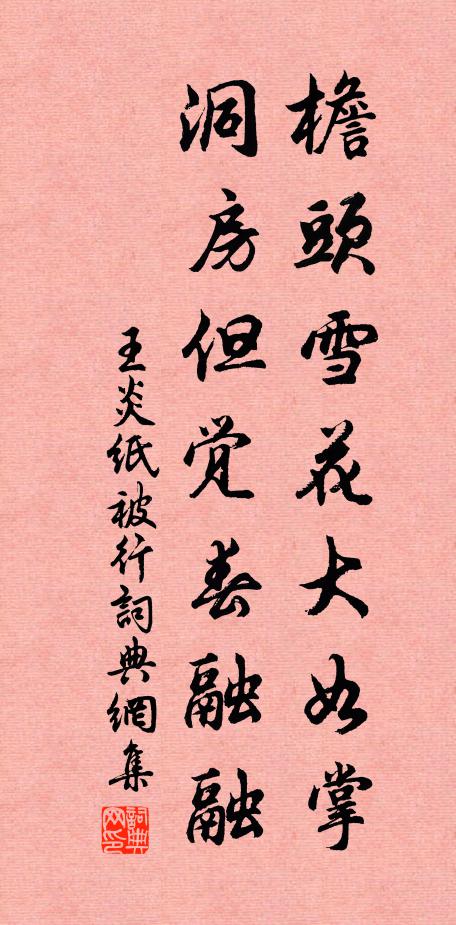 檐頭雪花大如掌
洞房但觉春融融
王炎纸被行詞典網集
詞典
网印